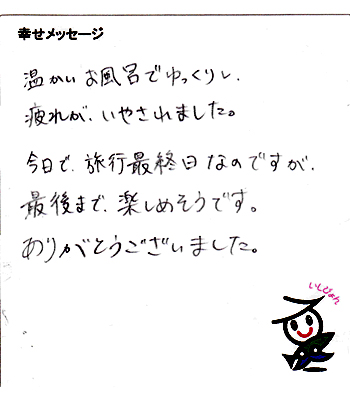 幸せメッセージ
温かいお風呂でゆっくりし、
疲れが、いやされました。
今日で、旅行最終日なのですが、
最後まで、楽しめそうです。
ありがとうございました。